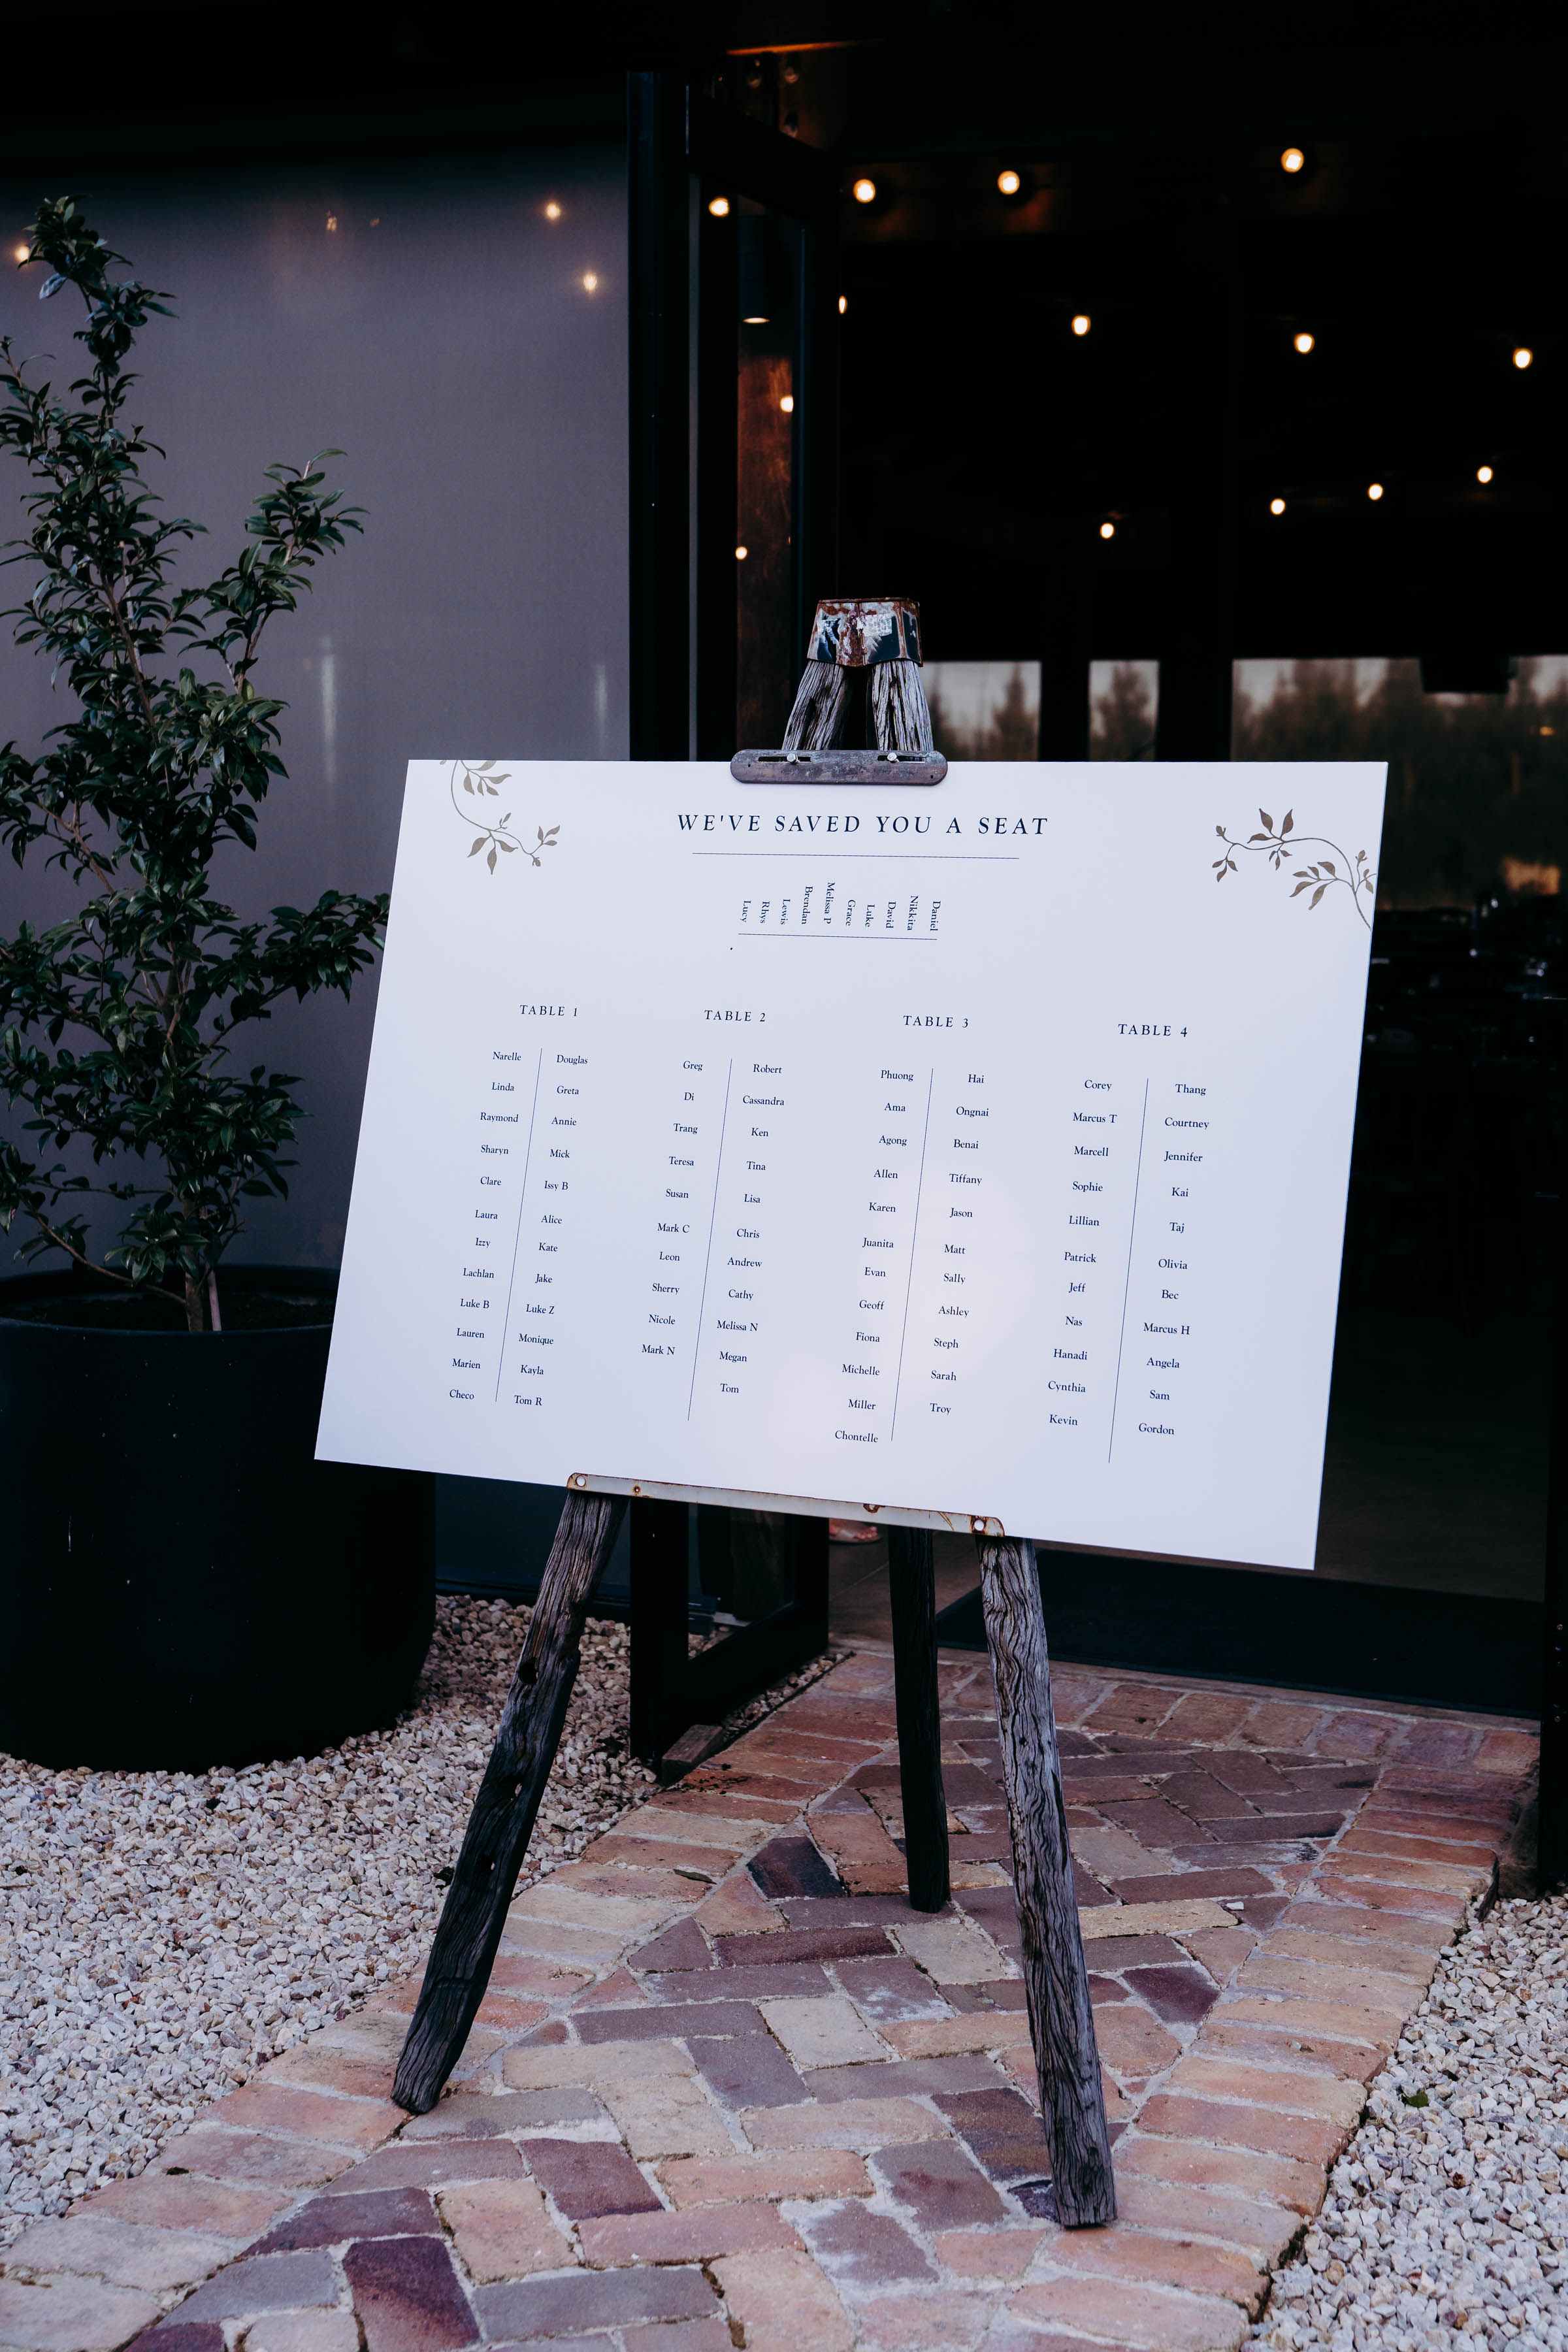 WE'VE SAVED YOU A SEAT
Lucy Rhys Lewis Brendan Melissa P Grace Luke David Nikkita Daniel
TABLE 1 TABLE 2 TABLE 3 TABLE 4
Narelle Douglas Greg Robert Phuong Hai Corey Thang
Linda Greta Di Cassandra Ama Ongnai Marcus T Courtney
Raymond Annie Trang Ken Agong Benai Marcell Jennifer
Sharyn Mick Teresa Tina Allen Tiffany Sophie Kai
Clare Issy B Susan Lisa Karen Jason Lillian Taj
Laura Alice Mark C Chris Juanita Matt Patrick Olivia
Izzy Kate Leon Andrew Evan Sally Jeff Bec
Lachlan Jake Sherry Cathy Geoff Ashley Nas Marcus H
Luke B Luke Z Nicole Melissa N Fiona Steph Hanadi Angela
Lauren Monique Mark N Megan Michelle Sarah Cynthia Sam
Marien Kayla Tom Miller Troy Kevin Gordon
Checo Tom R Chontelle